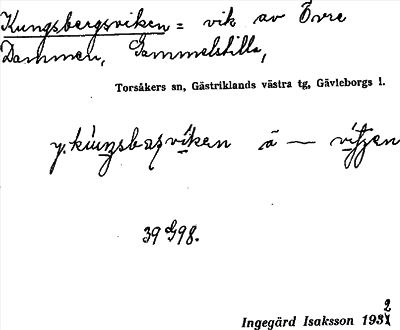 Kungsbergsviken = vik av Övre
Dammen, Gammelstilla,
Torsåkers sn, Gästriklands västra tg, Gävleborgs l.
39 G 98.
Ingegärd Isaksson 1932